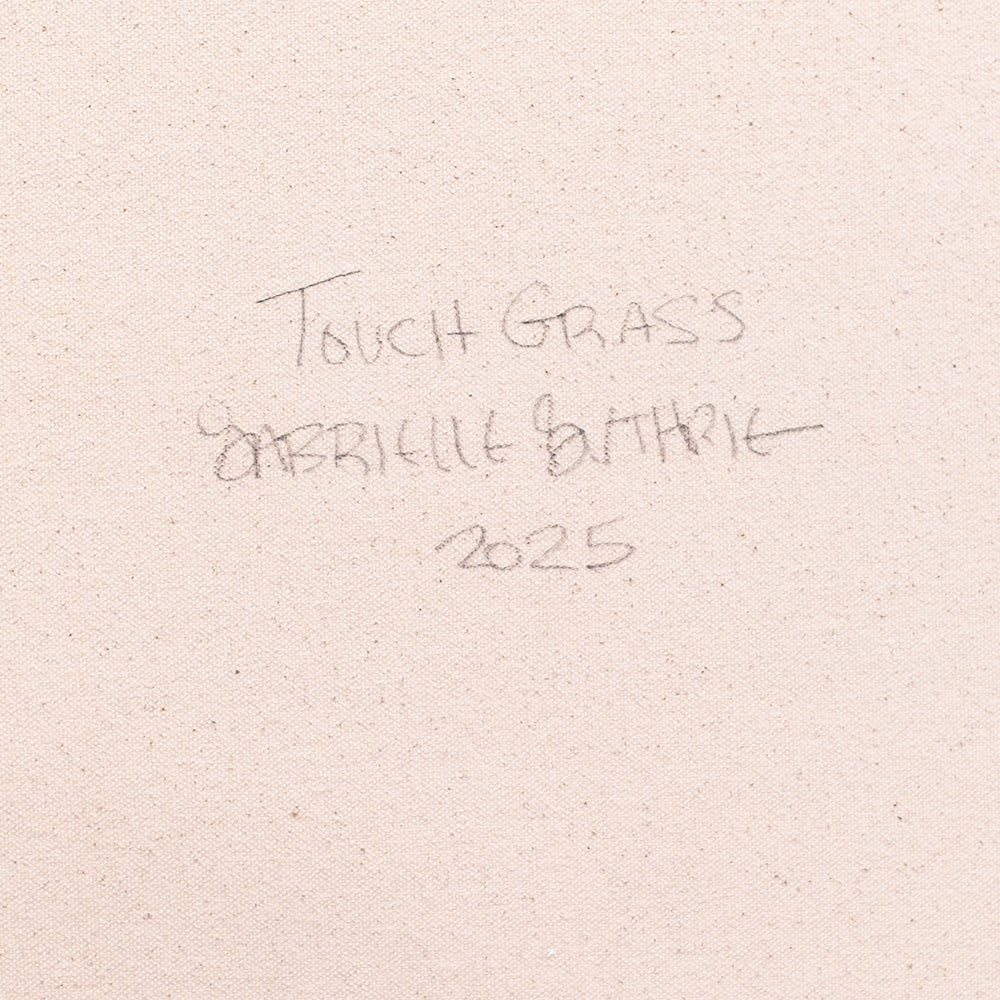 Touch Grass
Gabrielle Guthrie
2025